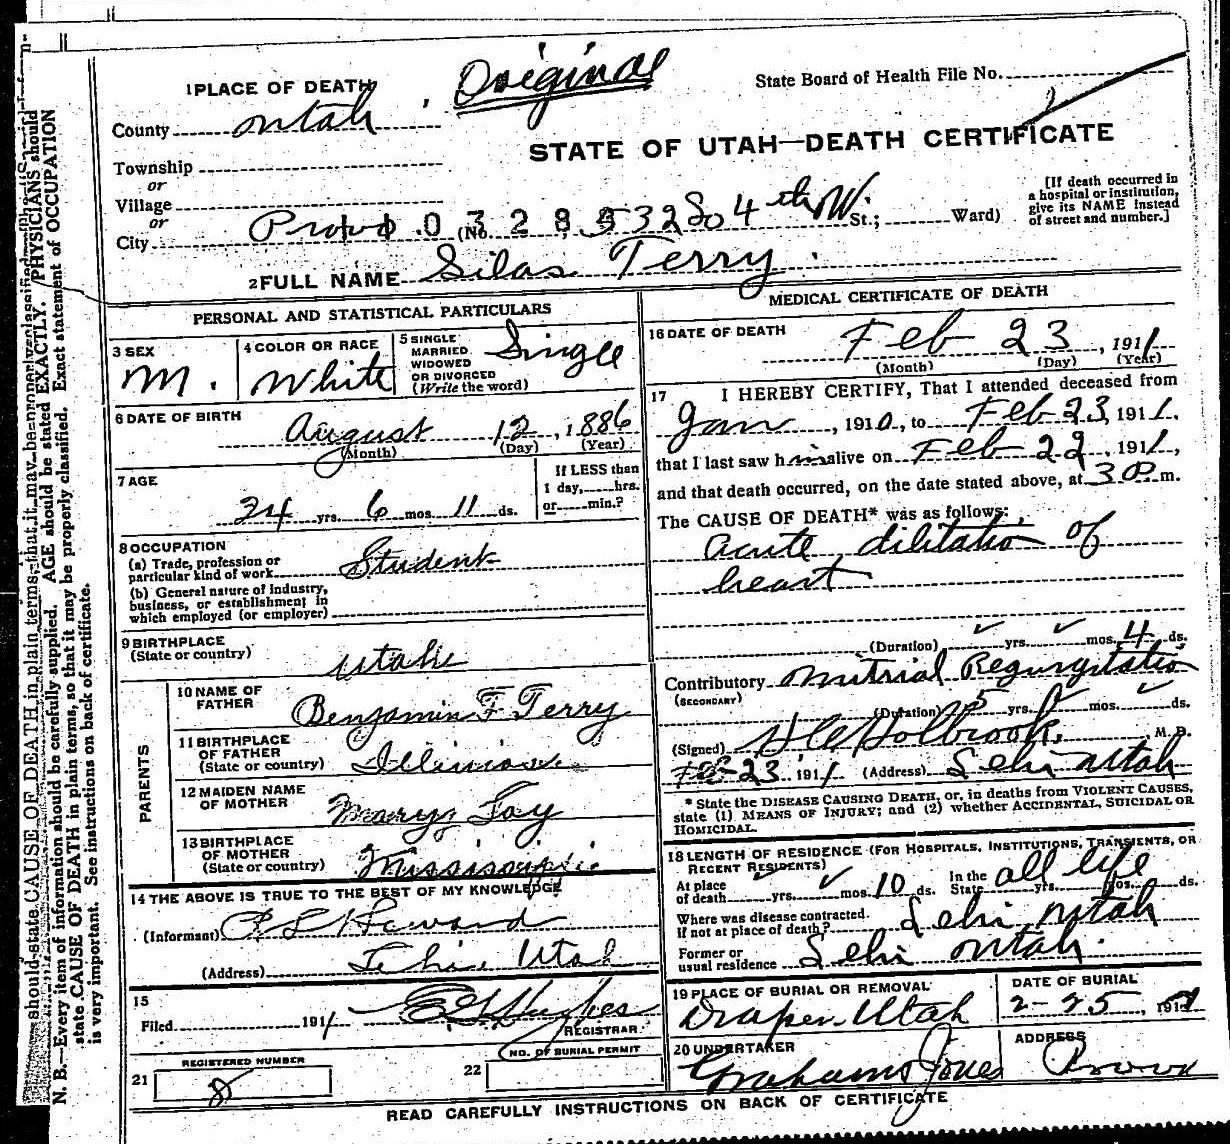 1 PLACE OF DEATH
Original
State Board of Health File No.
County Utah
STATE OF UTAH—DEATH CERTIFICATE
Township
or
Village
or
City Provo (No. 0 3 2 8 5 32 So 4th W. St.; Ward)
[If death occurred in
a hospital or institution,
give its NAME instead
of street and number.]
2 FULL NAME Silas Terry.
PERSONAL AND STATISTICAL PARTICULARS
3 SEX
M.
4 COLOR OR RACE
White
5 SINGLE
MARRIED
WIDOWED
OR DIVORCED
(Write the word)
Single
6 DATE OF BIRTH
August 12, 1886
(Month) (Day) (Year)
7 AGE
24 yrs. 6 mos. 11 ds.
If LESS than
1 day, hrs.
or min.?
8 OCCUPATION
(a) Trade, profession or
particular kind of work Student
(b) General nature of industry,
business, or establishment in
which employed (or employer)
9 BIRTHPLACE
(State or country)
Utah
PARENTS
10 NAME OF
FATHER
Benjamin F Terry
11 BIRTHPLACE
OF FATHER
(State or country)
Illinois
12 MAIDEN NAME
OF MOTHER
Mary Fay
13 BIRTHPLACE
OF MOTHER
(State or country)
Mississippi
14 THE ABOVE IS TRUE TO THE BEST OF MY KNOWLEDGE
(Informant) Howard
(Address) Lehi, Utah
15
Filed 1911
REGISTRAR
REGISTERED NUMBER
21 8
NO. OF BURIAL PERMIT
22
MEDICAL CERTIFICATE OF DEATH
16 DATE OF DEATH
Feb 23, 1911
(Month) (Day) (Year)
17 I HEREBY CERTIFY, That I attended deceased from
Jan, 1910, to Feb 23, 1911.
that I last saw him alive on Feb 22, 1911,
and that death occurred, on the date stated above, at 3 P. m.
The CAUSE OF DEATH* was as follows:
Acute dilitatio of
heart
(Duration) yrs. mos. 4 ds.
Contributory Mitrial Regurgitatio
(SECONDARY)
(Duration) 5 yrs. mos. ds.
(Signed) Holbrook, M. D.
Feb 23. 1911 (Address) Lehi Utah
* State the DISEASE CAUSING DEATH, or, in deaths from VIOLENT CAUSES,
state (1) MEANS OF INJURY; and (2) whether ACCIDENTAL, SUICIDAL OR
HOMICIDAL.
18 LENGTH OF RESIDENCE (FOR HOSPITALS, INSTITUTIONS, TRANSIENTS, OR
RECENT RESIDENTS)
At place
of death yrs. mos. 10 ds. In the
State all life yrs. mos. ds.
Where was disease contracted.
if not at place of death? Lehi Utah
Former or
usual residence Lehi Utah.
19 PLACE OF BURIAL OR REMOVAL
Draper Utah
DATE OF BURIAL
2-25, 1911
20 UNDERTAKER
Grahams Jones
ADDRESS
Provo
READ CAREFULLY INSTRUCTIONS ON BACK OF CERTIFICATE
N. B.—Every item of information should be carefully supplied. AGE should be stated EXACTLY. PHYSICIANS should
state CAUSE OF DEATH in plain terms, so that it may be properly classified. Exact statement of OCCUPATION
is very important. See instructions on back of certificate.